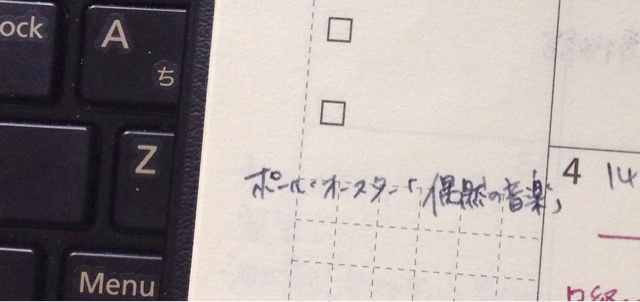 ock
A
ち
Z
Menu
ポール・オースター「偶然の音楽」
4
14